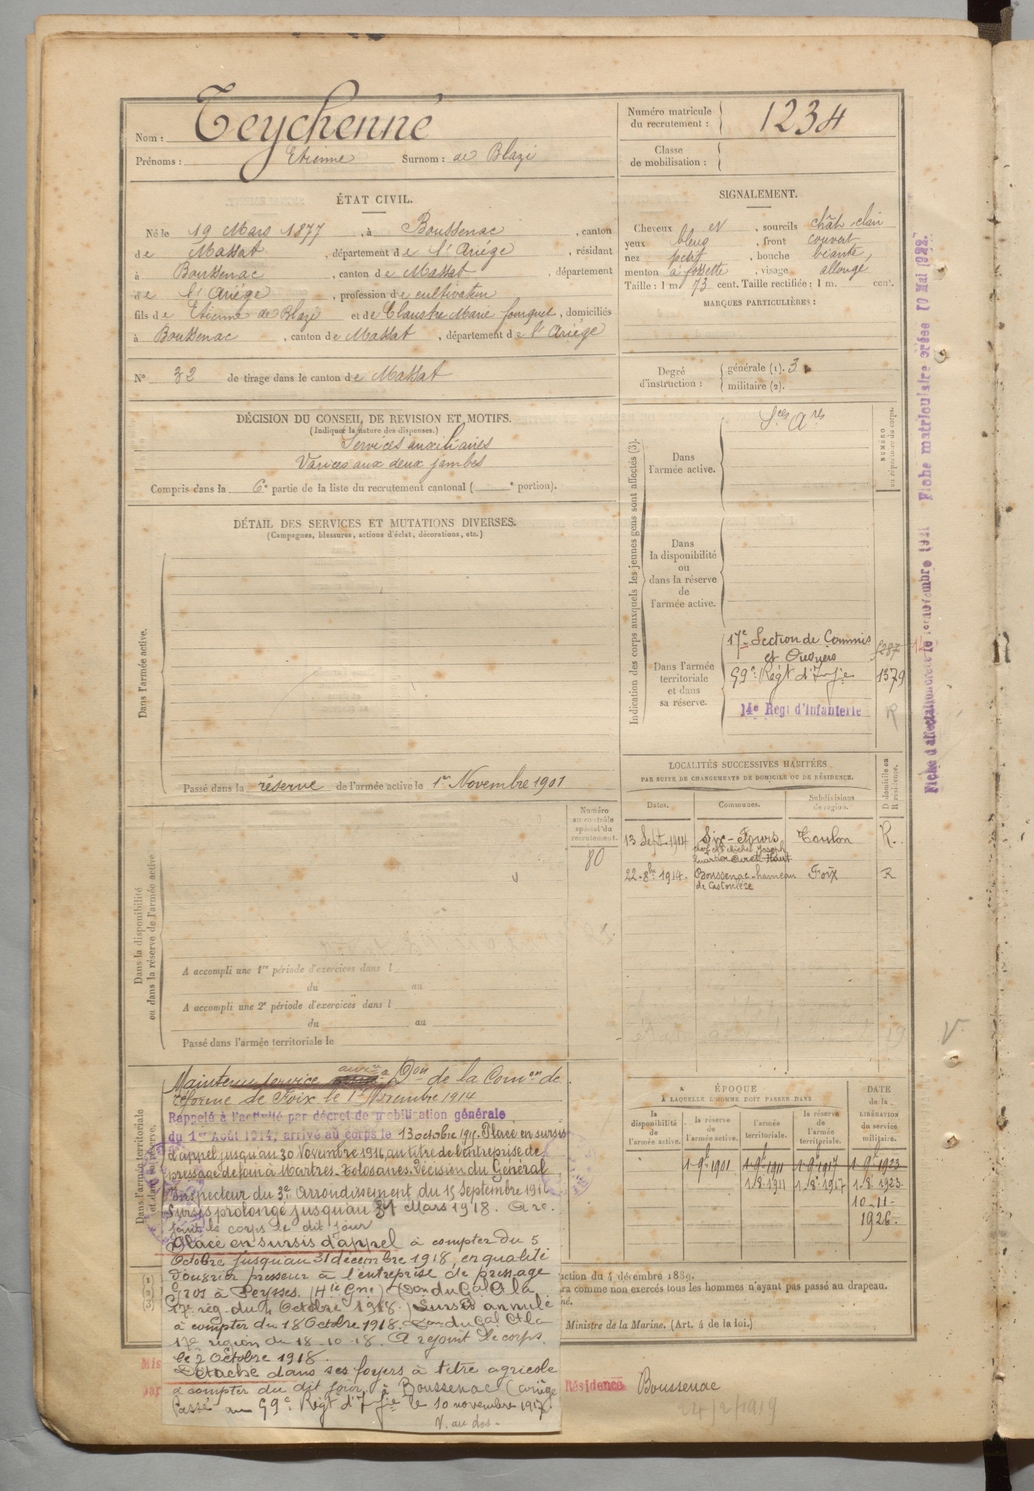 Nom : Teychenné
Prénoms : Etienne Surnom : de Blazi
Numéro matricule
du recrutement : 1234
Classe
de mobilisation :
ÉTAT CIVIL.
Né le 19 Mars 1877, à Boussenac, canton
de Massat, département de l'Ariége, résidant
à Boussenac, canton de Massat, département
de l'Ariége, profession de cultivateur
fils de Etienne de Blazi et de Claustre Marie fouquet, domiciliés
à Boussenac, canton de Massat, département de l'Ariége
N° 32 de tirage dans le canton de Massat
SIGNALEMENT.
Cheveux et, sourcils chât-clair
yeux bleus, front couvert
nez petit, bouche béante,
menton à fossette, visage allongé
Taille : 1 m 73 cent. Taille rectifiée : 1 m. cent.
MARQUES PARTICULIÈRES :
Degré
d'instruction :
générale (1). 3
militaire (2).
DÉCISION DU CONSEIL DE REVISION ET MOTIFS.
(Indiquer la nature des dispenses.)
Services auxiliaires
Varices aux deux jambes
Compris dans la 6e partie de la liste du recrutement cantonal ( e portion).
DÉTAIL DES SERVICES ET MUTATIONS DIVERSES.
(Campagnes, blessures, actions d'éclat, décorations, etc.)
Dans l'armée active.
Passé dans la réserve de l'armée active le 1er Novembre 1901
Indication des corps auxquels les jeunes gens sont affectés (3).
NUMÉRO
au répertoire du corps.
Dans
l'armée active.
Sces Ares
Dans
la disponibilité
ou
dans la réserve
de
l'armée active.
Dans l'armée
territoriale
et dans
sa réserve.
17e Section de Commis
et Ouvriers
59e Régt d'Infie 1579
14e Régt d'Infanterie R
Fiche matriculaire créée 10 Mai 1922.
LOCALITÉS SUCCESSIVES HABITÉES
PAR SUITE DE CHANGEMENTS DE DOMICILE OU DE RÉSIDENCE.
Dates. Communes. Subdivisions
de région. D domicile ou
R résidence.
13 Sept. 1914 Six-Fours Toulon R.
22-8bre 1914. Boussenac hameau Foix R
Numéro
au contrôle
spécial du
recrutement.
80
Dans la disponibilité
ou dans la réserve de l'armée active
A accompli une 1re période d'exercices dans l
du au
A accompli une 2e période d'exercices dans l
du au
Passé dans l'armée territoriale le
Dans l'armée territoriale
et dans sa réserve.
Maintenu service auxre Don de la Comon de
réforme de Foix le 1er Novembre 1914
Rappelé à l'activité par décret de mobilisation générale
du 1er Août 1914, arrivé au corps le 13 octobre 1915. Placé en sursis
d'appel jusqu'au 30 Novembre 1916, au titre de l'entreprise de
pressage de foin à Martres-Tolosanes. Décision du Général
Inspecteur du 3e Arrondissement du 15 Septembre 1916
Sursis prolongé jusqu'au 31 Mars 1918. A re-
joint le corps le dit jour
Placé en sursis d'appel à compter du 5
Octobre jusqu'au 31 décembre 1918, en qualité
d'ouvrier presseur à l'entreprise de pressage
Gros à Peysses (Hte Gne) (Don du Gal Ct la
17e rég. du 4 Octobre 1918.) Sursis annulé
à compter du 18 Octobre 1918. Don du Gal Ct la
17e région du 18-10-18. A rejoint le corps
le 2 Octobre 1918.
Détaché dans ses foyers à titre agricole
à compter du dit jour, à Boussenac (Ariège
Passé au 59e Régt d'Infie le 10 novembre 1917.
V. au dos.
ÉPOQUE
À LAQUELLE L'HOMME DOIT PASSER DANS
DATE
de la
LIBÉRATION
du service
militaire.
la
disponibilité
de
l'armée active.
la réserve
de
l'armée active.
l'armée
territoriale.
la réserve
de
l'armée
territoriale.
1-9bre 1901 1-9bre 1911 1-9bre 1917 1-9bre 1923
1-8-1911 1-8-1917 1-8-1923
10-11-
1926.
ction du 4 décembre 1889.
ra comme non exercés tous les hommes n'ayant pas passé au drapeau.
né.
Ministre de la Marine. (Art. 4 de la loi.)
Résidence Boussenac
24/2/1919